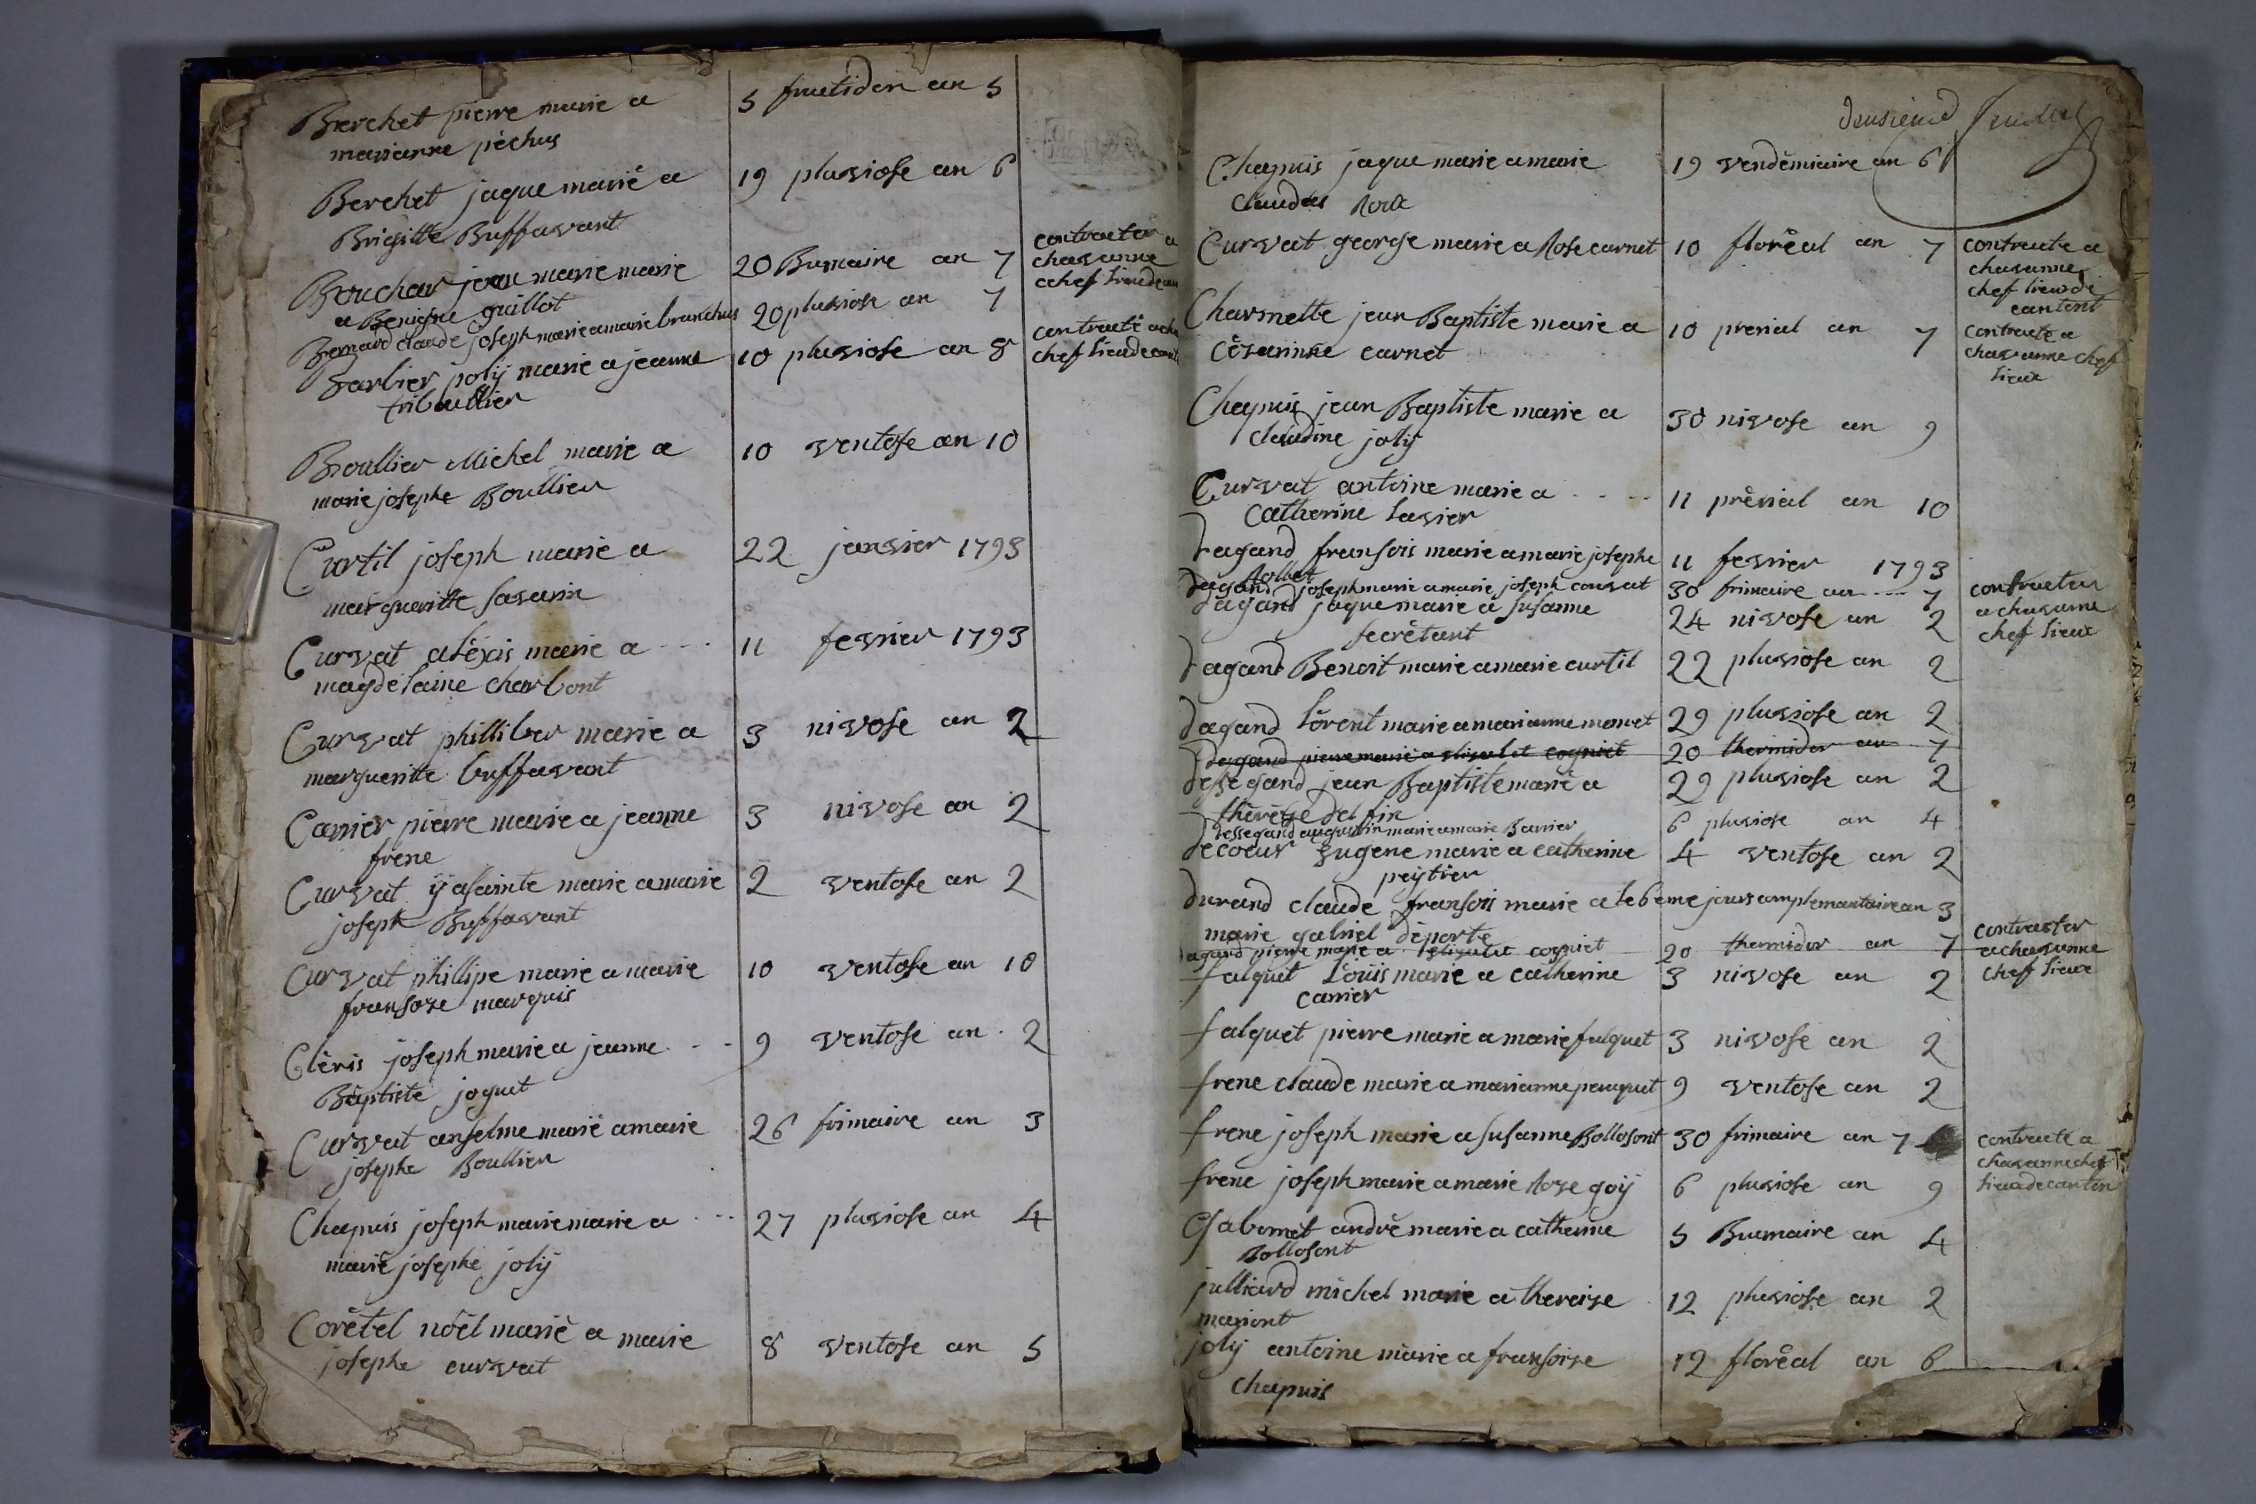 Berchet pierre marie a 5 frutidor an 5
marianne péchus
Berchet jaque marié a 19 plusiose an 6
Brigitte Buffavant
Bouchar jean marie marie 20 Bumaire an 7 contracter a
a Benigne guillot chavanne
chef lieu de
Bernard claude joseph marie a marie branchus 20 plusiose an 7
Barlier joly marie a jeanne 10 plusiose an 8 contracté a
tribullier chef lieu de
Boullier Michel marie a 10 ventose an 10
marie josephe Boullier
Curtil joseph marie a 22 jansier 1793
margueritte savarin
Curvat aléxis marie a 11 fesrier 1793
magdelaine charbont
Curvat philliber marie a 3 nivose an 2
margueritte buffavant
Carrier pierre marie a jeanne 3 nivose an 2
frene
Curvat ÿasainte marie a marie 2 ventose an 2
joseph Buffavant
Curvat phillipe marie a marie 10 ventose an 10
fransoze marquis
Cléris joseph marie a jeanne 9 ventose an 2
Baptiste joguet
Curvat anselme marié a marie 26 frimaire an 3
josephe Boullier
Chapuis joseph marie marie a 27 plusiose an 4
marie josephe joly
Corétel nöel marié a marie 8 ventose an 5
josephe curvat
deusieme
Chapuis jaque marie a marie 19 vendémiaire an 6
claudas
Curvat george marie a Rose carnet 10 floréal an 7 contracte a
chavanne
chef lieu de
cantont
Charmette jean Baptiste marie a 10 prerial an 7 contracte a
césarinne carnet chavanne chef
lieu
Chapuis jean Baptiste marie a 30 nivose an 9
claudine joly
Curvat antoine marie a 11 prérial an 10
Catherine lasier
dagand fransois marie a marie josephe 11 fesrier 1793
Rollet
dagand joseph marie a marie joseph courvat 30 frimaire an 7 contracter
dagand jaque marie a susanne 24 nivose an 2 a chavanne
secrétant chef lieu
dagand Benoit marie a marie curtil 22 plusiose an 2
dagand lorent marie a marianne momet 29 plusiose an 2
dagand pierre marié a elisabet cogniet 20 thermidor an 7
dessegand jean Baptiste marié a 29 plusiose an 2
thérèse delfin
dessegand augustin marie a marie Barrier 6 plusiose an 4
decoeur Eugene marie a catherine 4 ventose an 2
peytier
durand claude fransois marie a le 6eme jours complemantaire an 3
marie gabriel déporte contracter
dagand pierre marie a elisabet cogniet 20 thermidor an 7 a chavanne
falquet Loüis marie a catherine 3 nivose an 2 chef lieu
carrier
falquet pierre marie a marie falquet 3 nivose an 2
frene claude marie a marianne pauquet 9 ventose an 2
frene joseph marie a susanne Bollosont 30 frimaire an 7 contracte a
chavanne chef
frene joseph marie a marie Roze goÿ 6 plusiose an 9 lieu de canton
Gabomet andré marie a catherine 5 Bumaire an 4
Bollosont
julliard michel marie a theraise 12 plusiose an 2
mariont
jolÿ antoine marie a fransoise 12 floréal an 6
chapuis